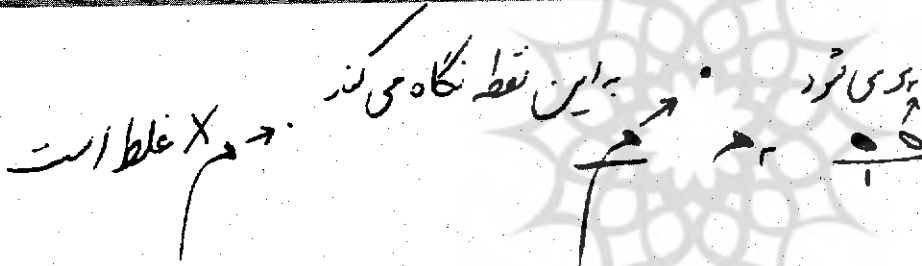 پر می شود به این نقطه نگاه می کند
۱ ۲ م م × غلط است